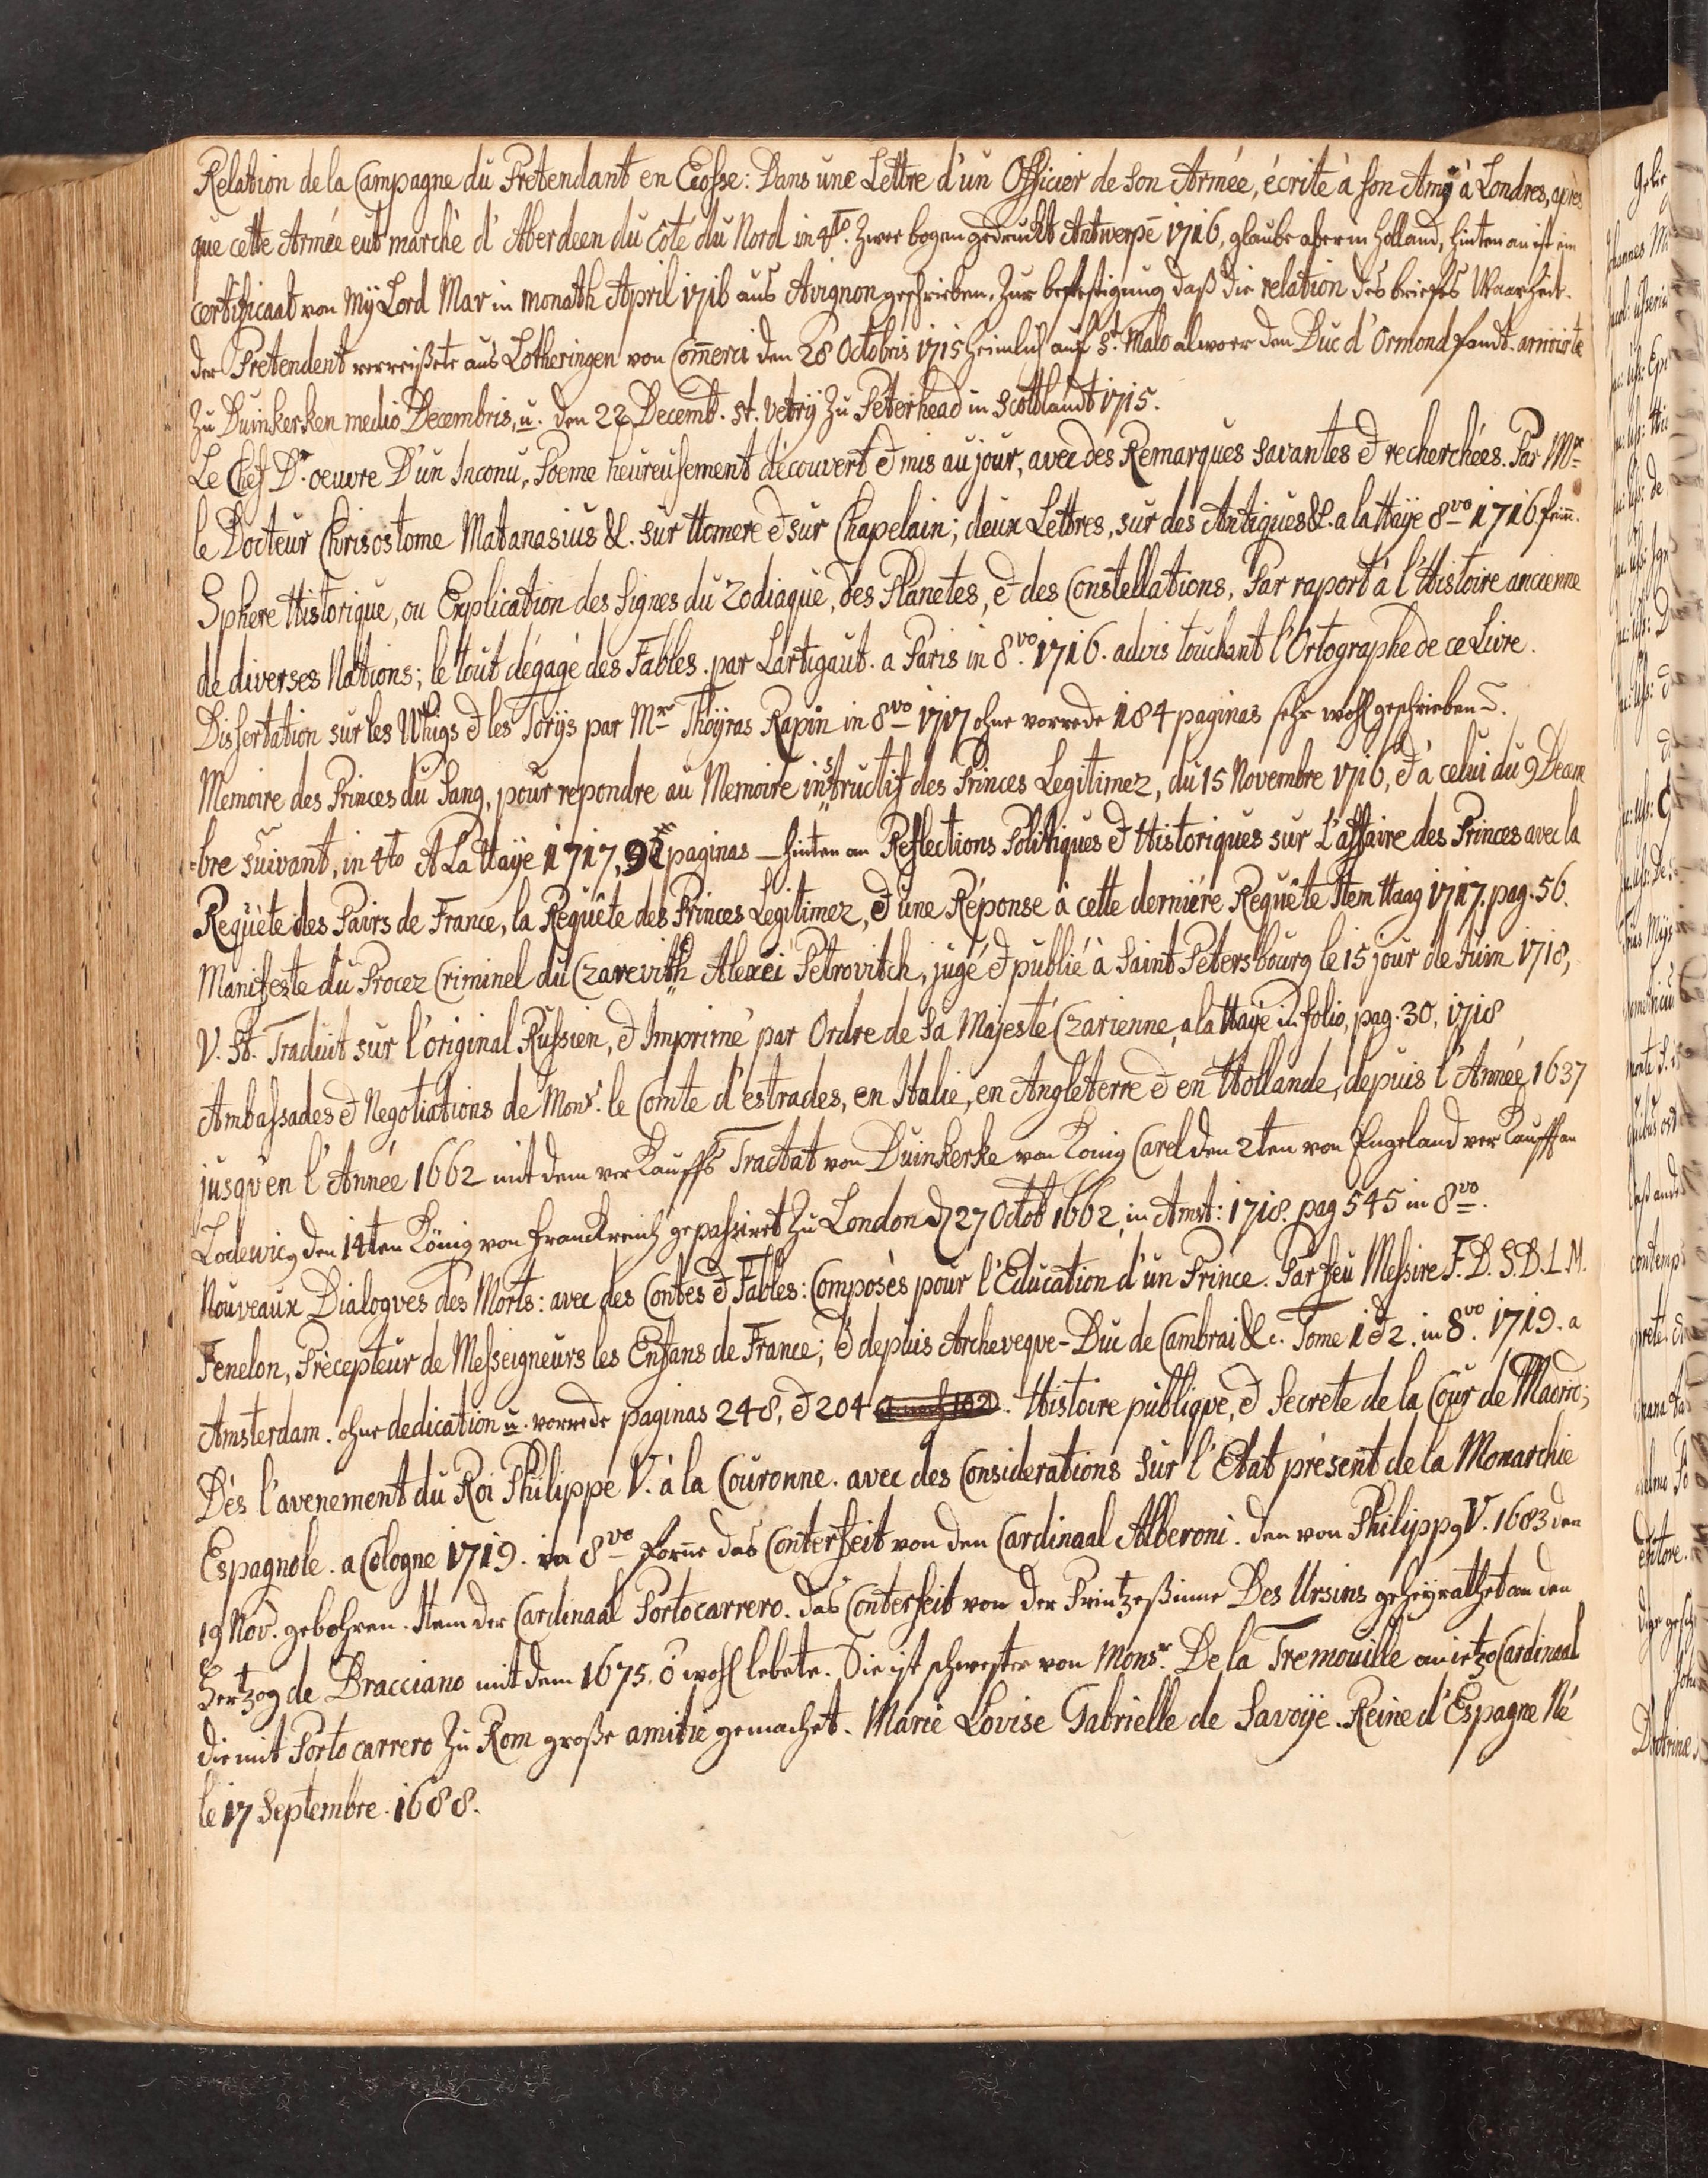 Relation de la Campagne du Pretendant en Ecosse: Dans une Lettre d'un Officier de son Armée, écrite à son Amy à Londres, après
que cette Armée eut marché d'Aberdeen du côté du Nord in 4to. Zwee bogen gedruckt Antwerpē 1716, glaube aber in Holland, hinten an ist ein
certificaat von Mÿ Lord Mar in monath April 1716 aus Avignon geschrieben. Zur befestigung daß die relation des briefes Waarheit.
der Pretendent verreißete aus Lotheringen von Com̄erci den 28 Octobris 1715 heimlich auf St. Malo alwo er den Duc d'Ormond fandt. arrivirte
Zu Duinkerken medio Decembris, u. den 22 Decemb. st. vetrij Zu Peterhead in Scottlandt 1715.
Le Chef D'oeuvre D'un Inconu, Poeme heureusement découvert & mis au jour, avec des Remarques savantes & recherchées. Par Mr
le Docteur Chrisostome Matanasius &. sur Homere & sur Chapelain; deux Lettres, sur des Antiques &. a la Haÿe 8vo 1716.
Sphere Historique, ou Explication des Signes du Zodiaque, des Planetes, & des Constellations, Par raport à l'Histoire ancienne
de diverses Nations; le tout dégagé des Fables. par Lartigaut. a Paris in 8vo. 1716. advis touchant l'Ortographe de ce Livre.
Dissertation sur les Whigs & les Torÿs par Mr Thoÿras Rapin in 8vo 1717 ohne vorrede 184 paginas sehr wohl geschrieben.
Memoire des Princes du Sang, pour repondre au Memoire instructif des Princes Legitimez, du 15 Novembre 1716, & à celui du 9 Decem
=bre suivant, in 4to A La Haÿe 1717, paginas – hinten an Reflections Politiques & Historiques sur L'affaire des Princes avec la
Requête des Pairs de France, la Requête des Princes Legitimez, & une Réponse à cette derniére Requête Item Haag 1717. pag. 56.
Manifeste du Procez Criminel du Czarevith Alexei Petrovitch, jugé & publié à Saint Petersbourg le 15 jour de Juin 1718,
V. St. Traduit sur l'original Russien, & Imprimé par Ordre de Sa Majesté Czarienne, a la Haÿe in folio, pag. 30, 1718
Ambassades & Negotiations de Monsr. le Comte d'estrades, en Italie, en Angleterre & en Hollande, depuis l'Année 1637
jusqu'en l'Année 1662 mit dem verkauffs Tractat von Duinkerke von König Carel den 2ten von Engeland verkaufft an
Lodewicg den 14ten König von Franckreich gepassiret Zu London d 27 Octob 1662, in Amst: 1718. pag 545 in 8vo.
Nouveaux Dialogves des Morts: avec des Contes & Fables: Composès pour l'Education d'un Prince. Par feu Messire F. D. S. D. L. M.
Fenelon, Précepteur de Messeigneurs les Enfans de France; & depuis Archeveqve-Duc de Cambrai &c. Tome 1 & 2. in 8vo. 1719. a
Amsterdam. ohne dedication u. vorrede paginas 248, & 204. Histoire publiqve, & Secrete de la Cour de Madric;
Dès l'avenement du Roi Philippe V. à la Couronne. avec des Considerations sur l'Etat présent de la Monarchie
Espagnole. a Cologne 1719. in 8vo forne das Conterfeit von den Cardinaal Alberoni. den von Philippg V. 1683 den
19 Nov. gebohren. Item der Cardinaal Portocarrero. das Conterfeit von der Printzeßinne Des Ursins geheyrathet an den
Hertzog de Bracciano mit dem 1675. wohl lebete. Sie ist schwester von Monsr. De la Tremouille an ietzo Cardinaal
die mit Portocarrero Zu Rom große amitie gemachet. Marie Lovise Gabrielle de Savoÿe. Reine d'Espagne Né
le 17 Septembre. 1688.